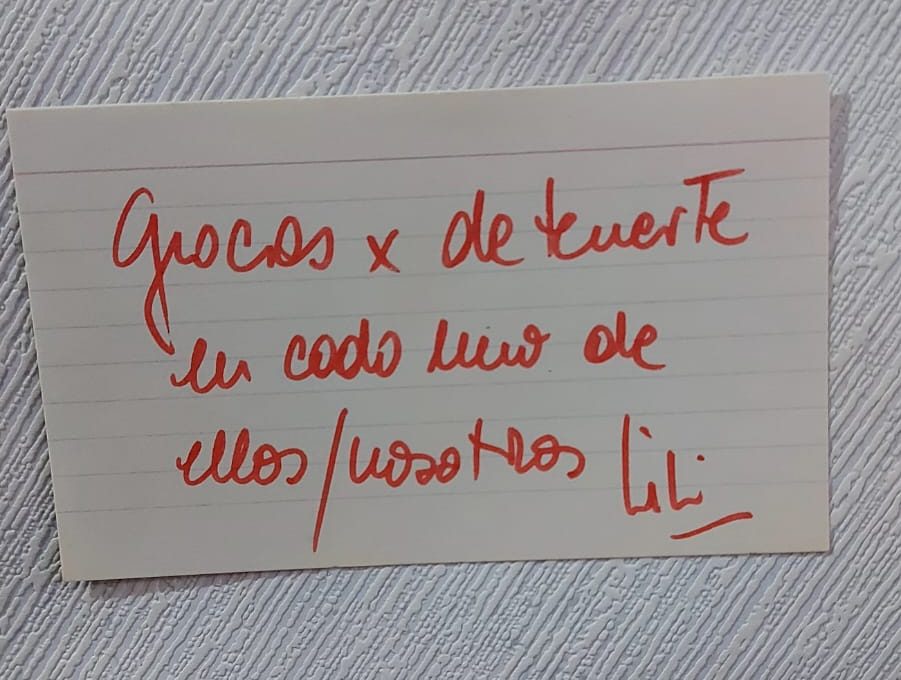 Gracias x detenerte
en cada uno de
ellos/nosotros Lili